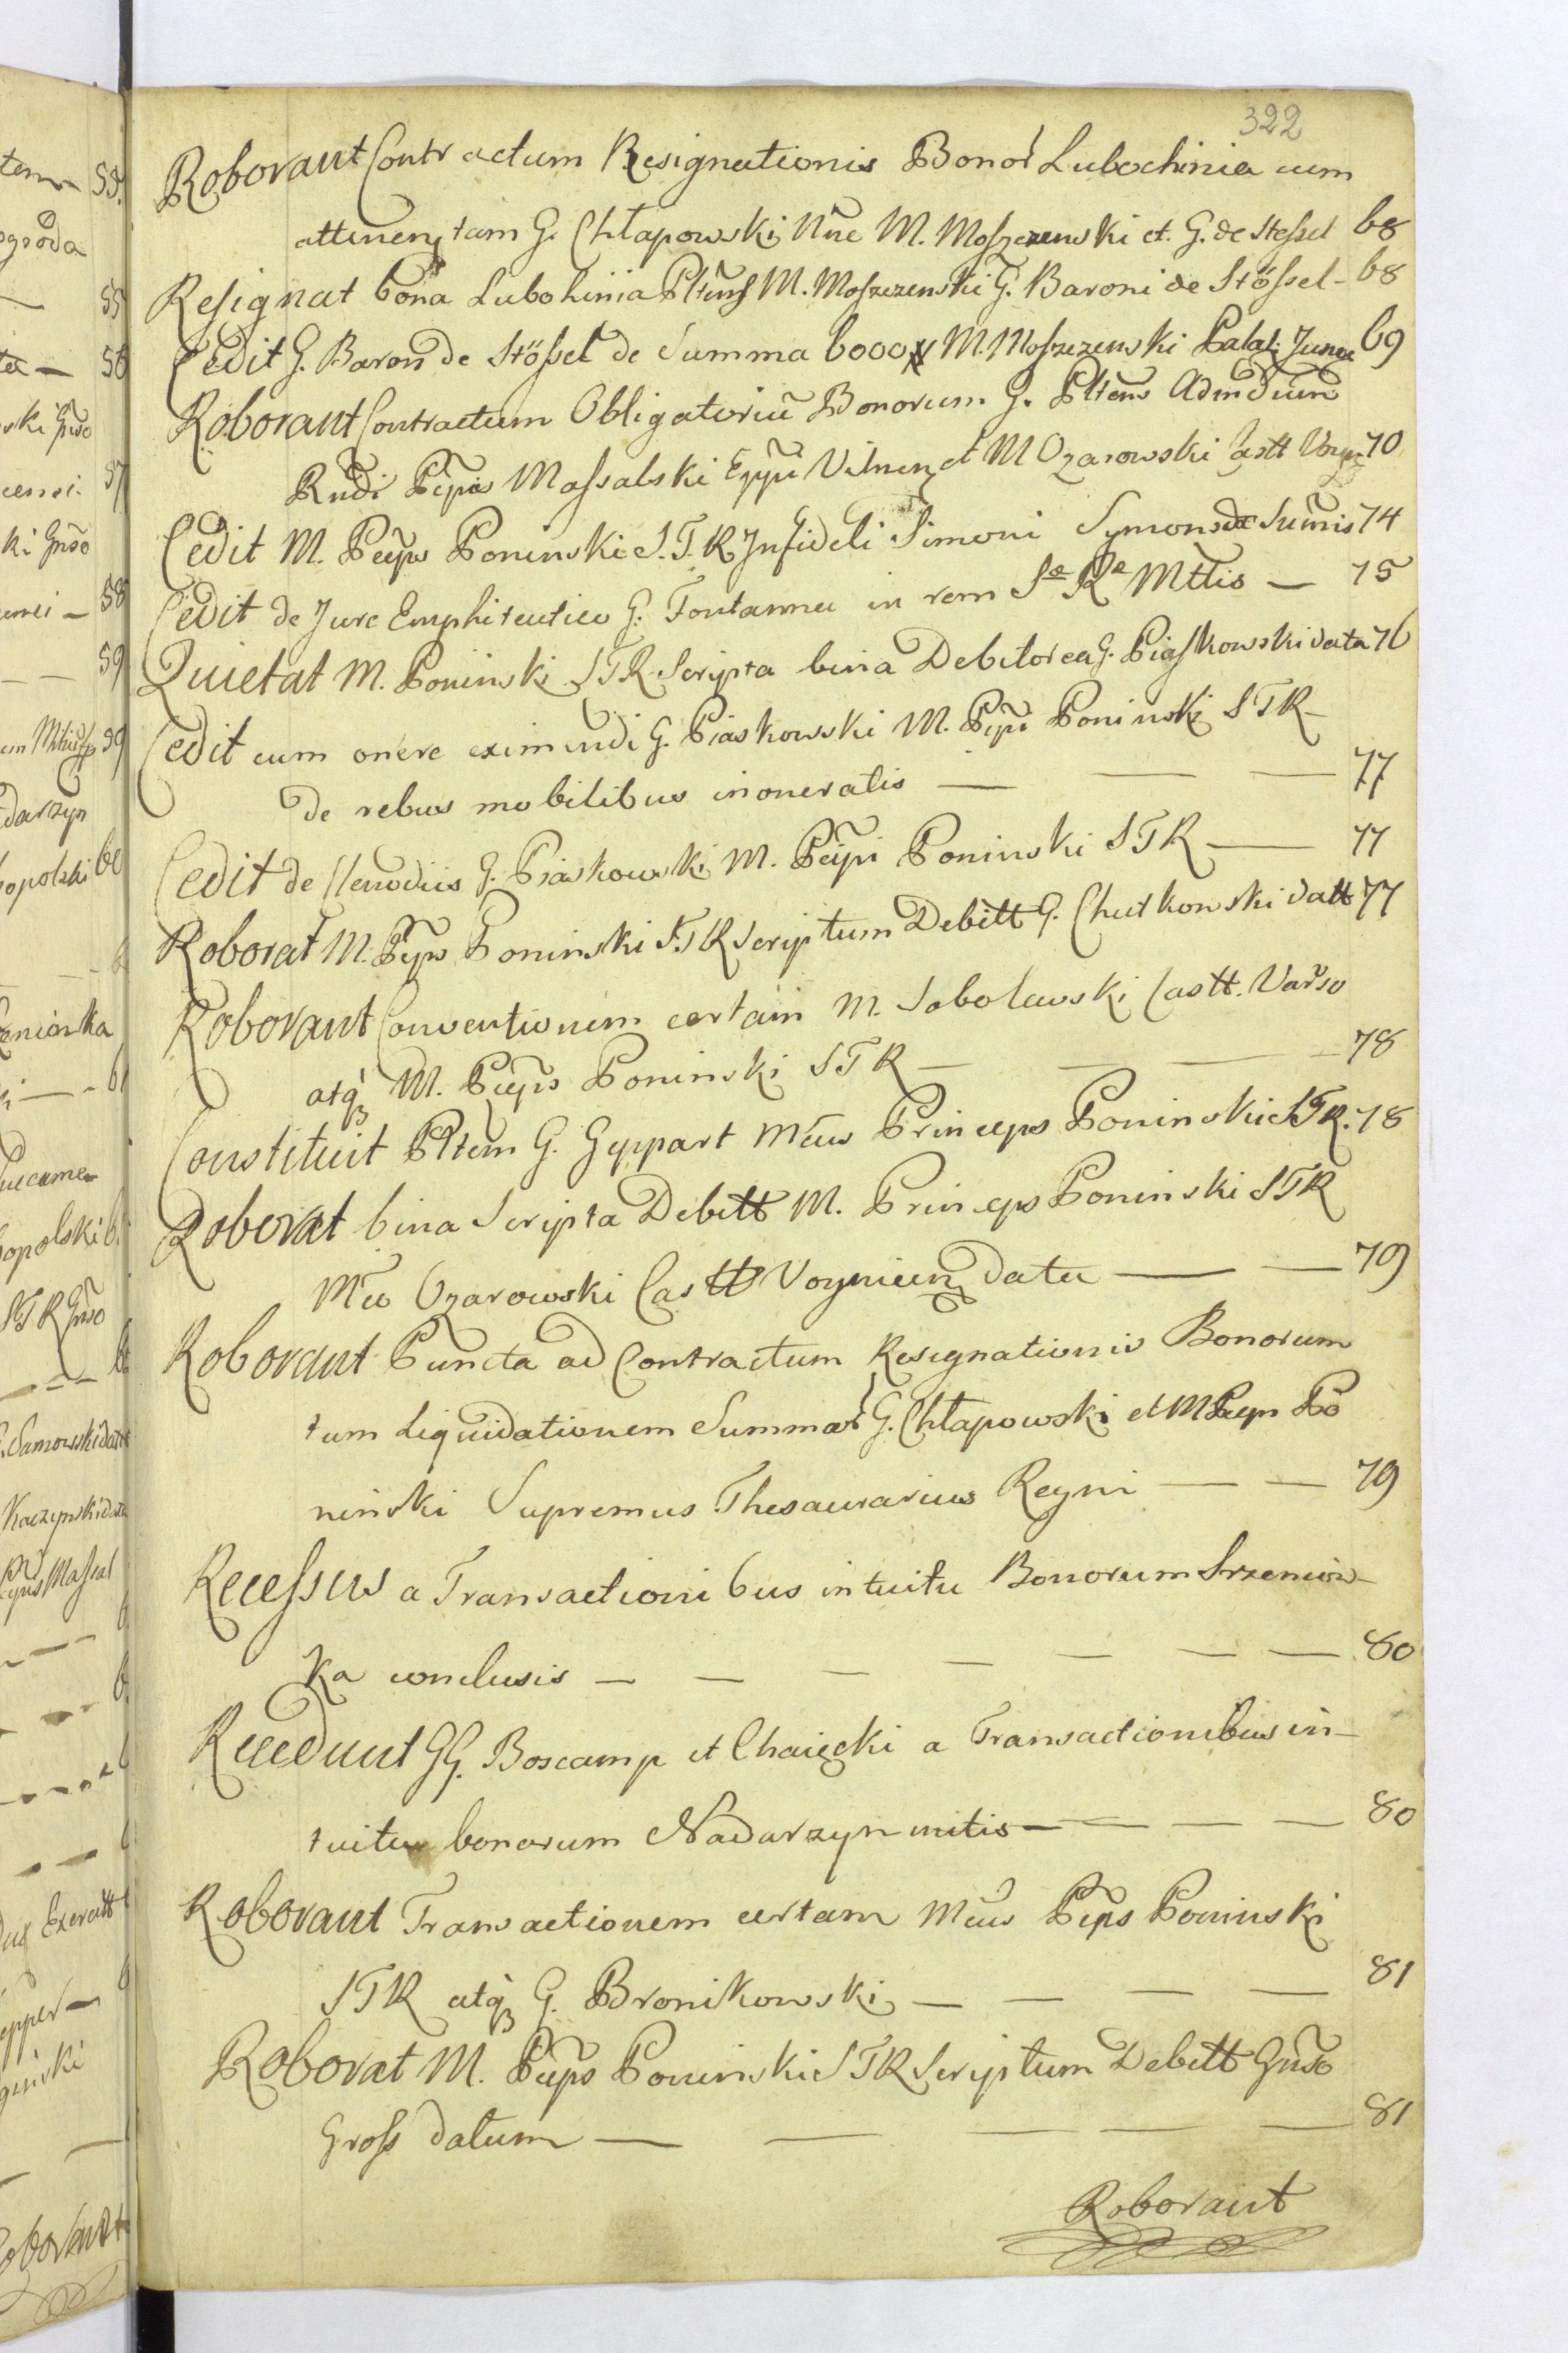 322
Roborant Contractum Resignationis Bonor Lubochinia cum
attinen tam G. Chłapowski Nñe M. Moszczenski et G. de Stessel 68
Resignat bona Lubohinia Pltens M. Moszczenski G. Baroni de Stössel - 68
Cedit G. Baron de Stössel de Summa 6000 M. Moszczenski Palat: Junec 69
Roborant Contractum Obligatoriũ Bonorum G. Pltens Admdum
Rndi Pcpis Massalski Eppi Vilnen et M Ozarowski Castt Voyn 70
Cedit M. Pceps Poninski S.T.R Infideli Simoni Symons de Sumis 74
Cedit de Jure Emphiteutico G. Fontanna in rem Sᵃ Rᵃ Mttis — 75
Quietat M. Poninski STR Scripta bina Debitorea G. Piaskowski data 76
Cedit cum onere eximendi G. Piaskowski M. Pcpi Poninski STR
de rebus mobilibus inoneratis — — — 77
Cedit de Clenodiis G. Piaskowski M. Pcipi Poninski STR — 77
Roborat M. Pceps Poninski STR Scriptum Debitt G. Chutkowski datt 77
Roborant Conventionem certam M. Sobolewski Castt. Varso
atq̃ M. Pceps Poninski STR — — — 78
Constituit Pltem G. Geppart Mcus Princeps Poninski STR. 78
Roborat bina Scripta Debitt M. Princeps Poninski STR
Mco Ozarowski Castt Voynicen data — — 79
Roborant Puncta ad Contractum Resignationis Bonorum
tum Liquidationem Summar G. Chłapowski et M Pceps Po
ninski Supremus Thesaurarius Regni — — 79
Recessus a Transactionibus intuitu Bonorum Srzenion-
ka conclusis — — — — — — 80
Recedunt GG. Boscamp et Chaięcki a Transactionibus in-
tuitu bonorum Nadarzyn initis — — — — 80
Roborant Transactionem certam Mcus Pceps Poninski
STR atq̃ G. Bronikowski — — — — 81
Roborat M. Pceps Poninski STR Scriptum Debitt Gñso
Gross datum — — — — — 81
Roborant